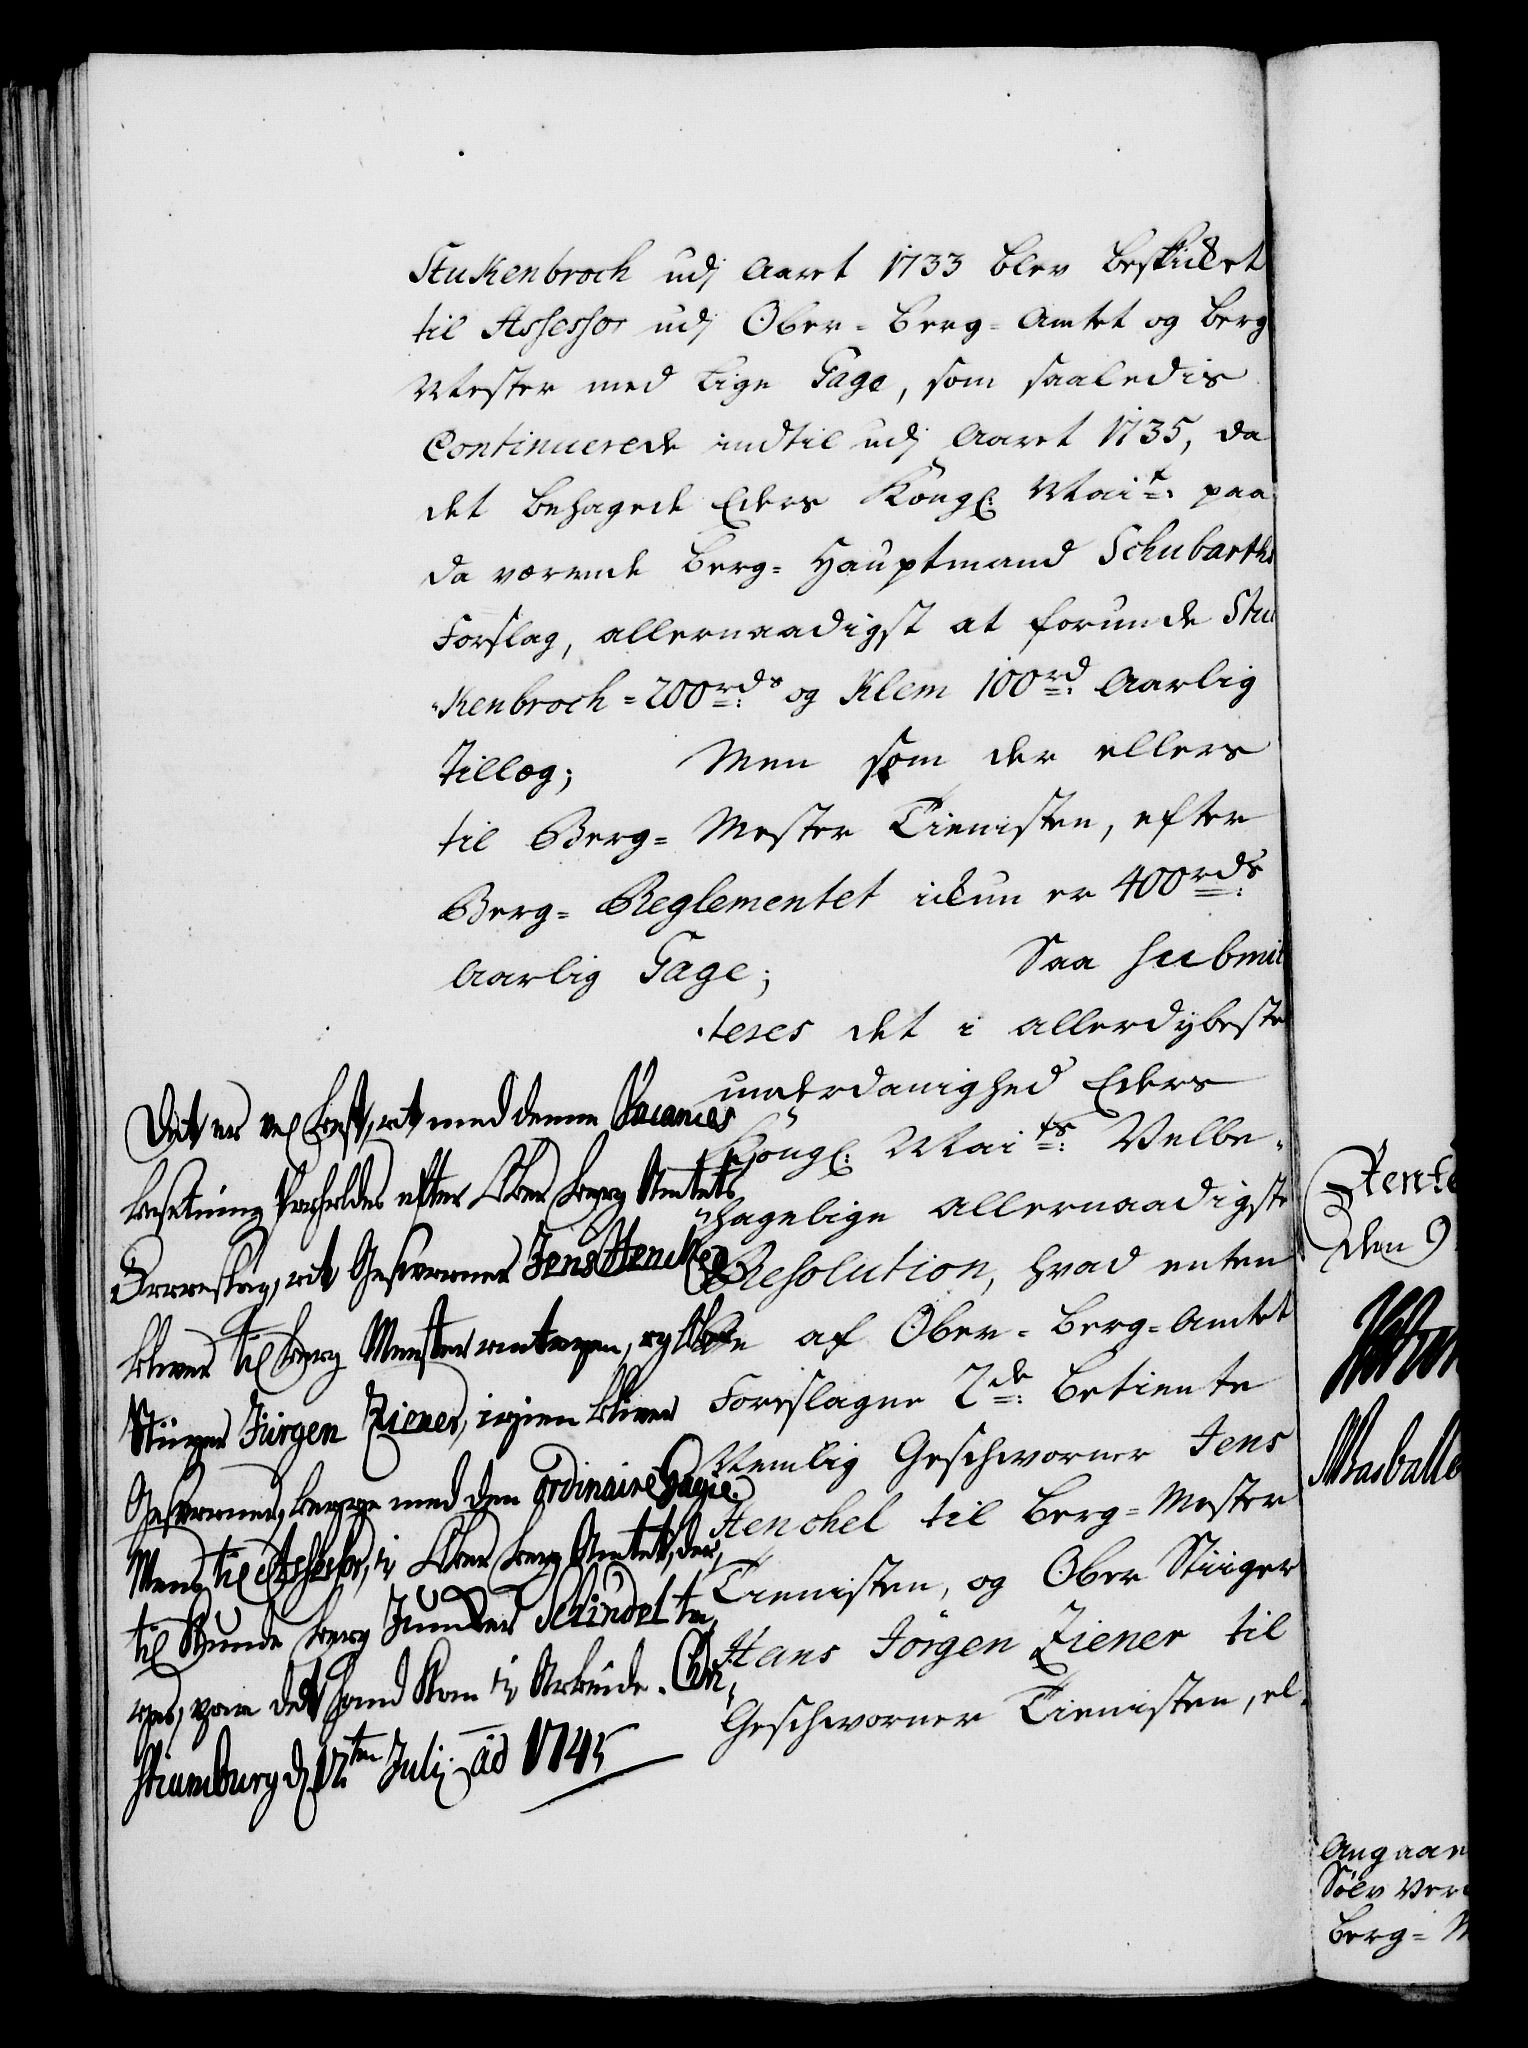 Stukenbroch udj Aaret 1733 blev beskicket
til Assessor udj Ober-Berg-Amtet og Berg
Mester med lige Gage, som saaledis
Continuerede indtil udj Aaret 1735, da
det behagede Eders Kongl: Mait: paa
da værende Berg-Hauptmand Schubarths
Forslag, allernaadigst at forunde Stu
kenbroch 200rds og Klem 100rd: Aarlig
Tillæg; Men som der ellers
til Berg-Mester Tienisten, efter
Berg-Reglementet ickun er 400rds:
Aarlig Gage; Saa submit
teres det i allerdybeste
underdanighed Eders
Kongl: Maits: Velbe-
hagelige allernaadigste
Resolution, hvad enten
de af Ober-Berg-Amtet
Foreslagne 2de: Betiente
Nemlig Geschworner Jens
Henchel til Berg-Mester
Tienisten, og Ober Stiiger
Hans Jörgen Ziener til
Geschworner Tienisten, el-
Det er vel best, at med denne Vacances
besetning forholdes efter Ober berg Amtets
Forreslag, at Gesvorner Jens Henckel
bliver til berg Mester antagen, og Ober
Stiiger Jürgen Ziener, igien bliver
Gesvorner, begge med den ordinaire Gagie.
Mens til Assessor, i Ober berg Amtet, der,
til kunde berg Junker Schindel ta,
ges, paa det hand kan i Arbeide. Chri,
stiansburg d. 12ten Julij. ao 1745
Rente
den 9
Masballe
Angaaen
Sölv Ver
Berg-M